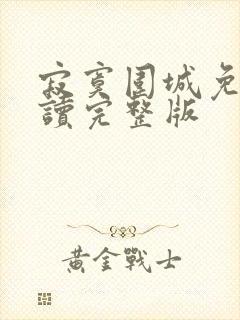 寂寞围城免
讀完整版
黃金戰士